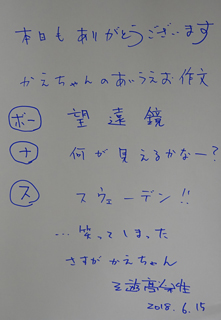 本日もありがとうございます
かえちゃんのあいうえお作文
ボー 望遠鏡
ナ 何が見えるかなー?
ス スウェーデン!!
…笑ってしまった
さすがかえちゃん
2018.6.15